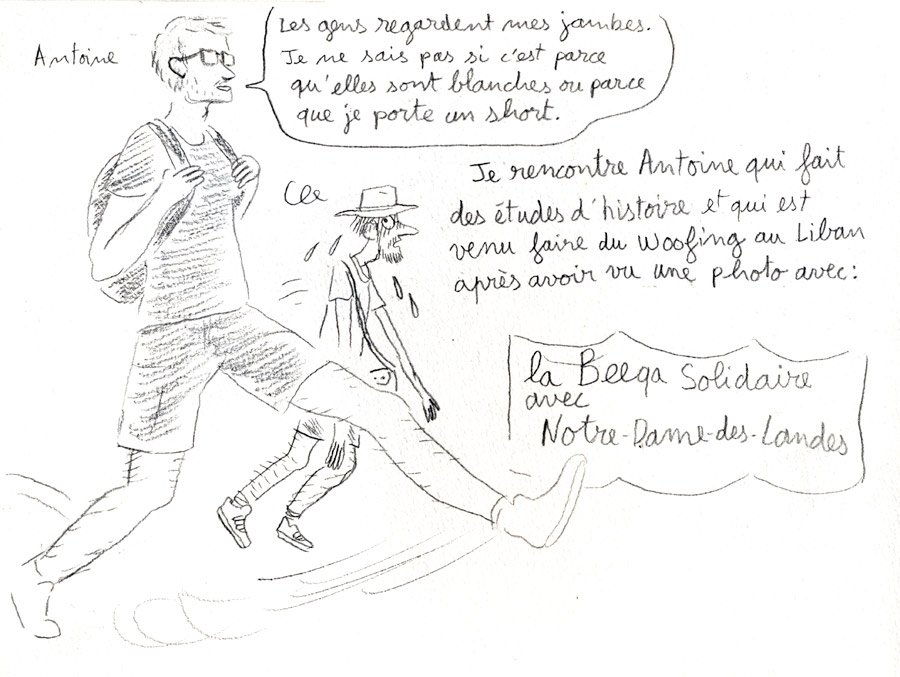 Antoine
Les gens regardent mes jambes.
Je ne sais pas si c'est parce
qu'elles sont blanches ou parce
que je porte un short.
Je rencontre Antoine qui fait
des études d'histoire et qui est
venu faire du woofing au Liban
après avoir vu une photo avec:
la Beeqa Solidaire
avec
Notre-Dame-des-Landes